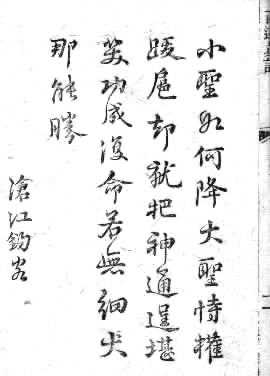 小聖如何降大聖恃權
跋扈却猶把神通逞堪
笑功成復命若無細犬
那能勝
滄江釣客